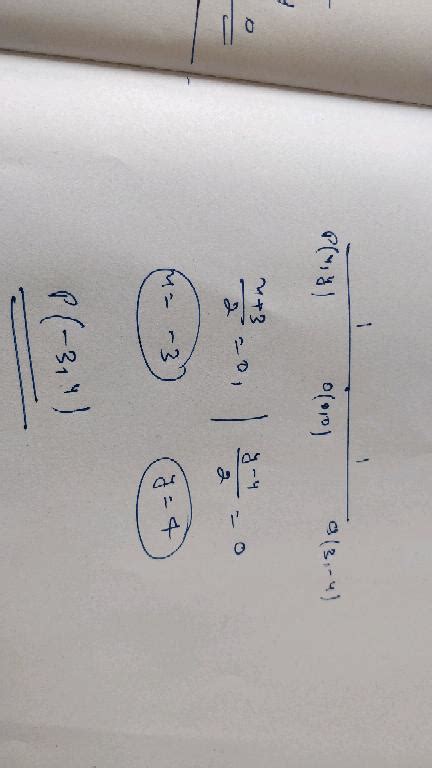 P(x,y) O(0,0) Q(3,-4)
1 1
x+3/2 = 0, | y-4/2 = 0
x = -3 y = 4
P(-3,4)
0